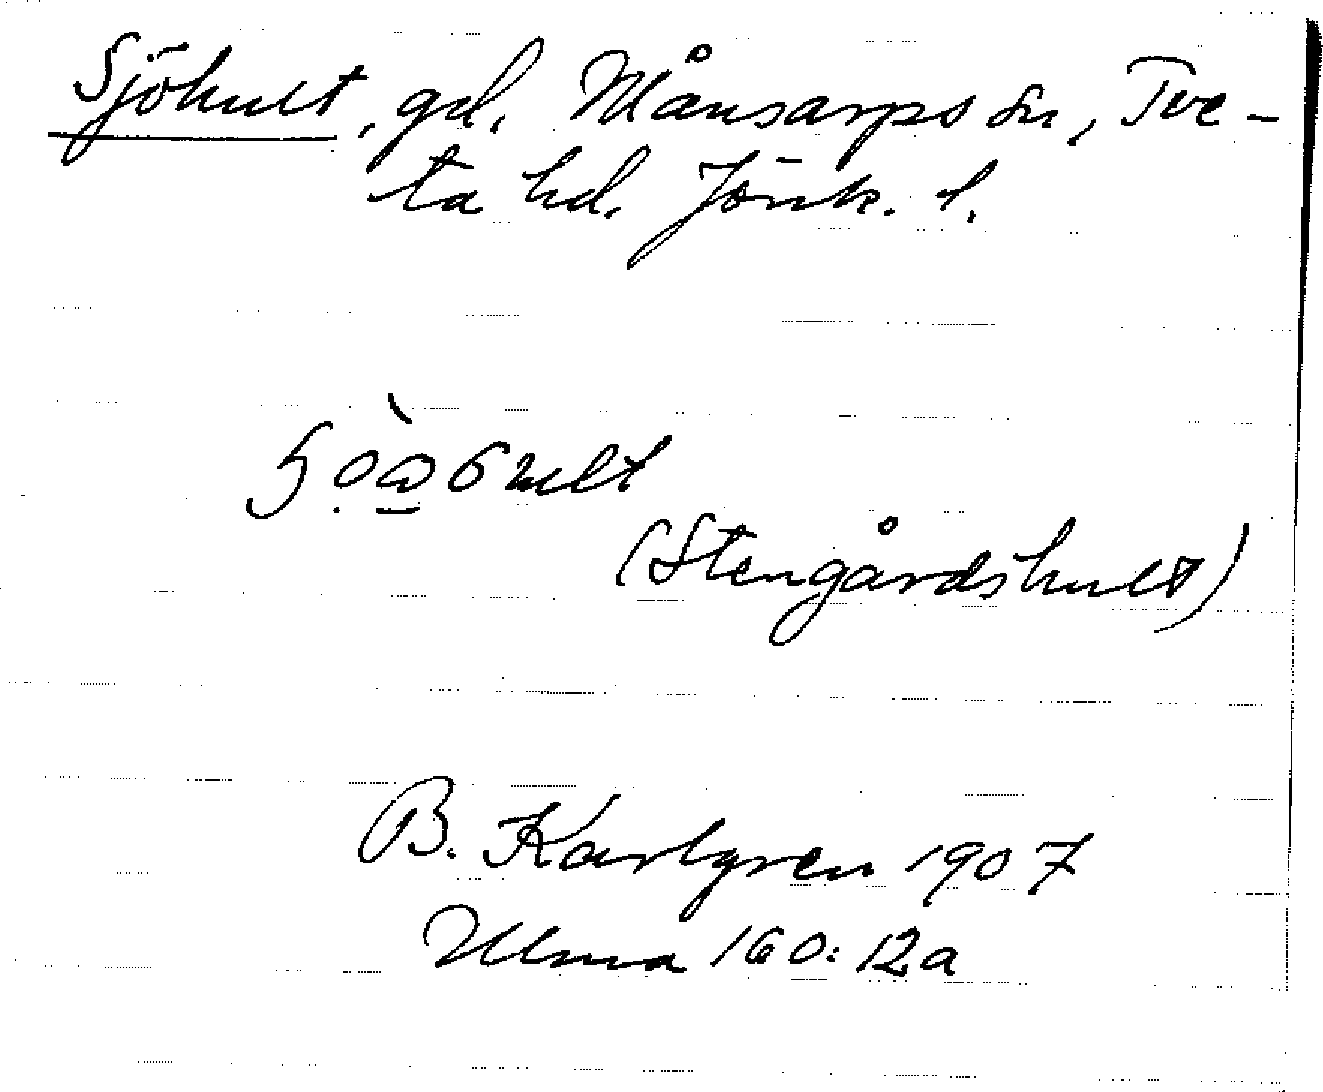 Sjöhult, gd. Månsarps sn, Tve-
ta hd. Jönk. l.
(Stengårdshult)
B. Karlgren 1907
Ulma 160:12a